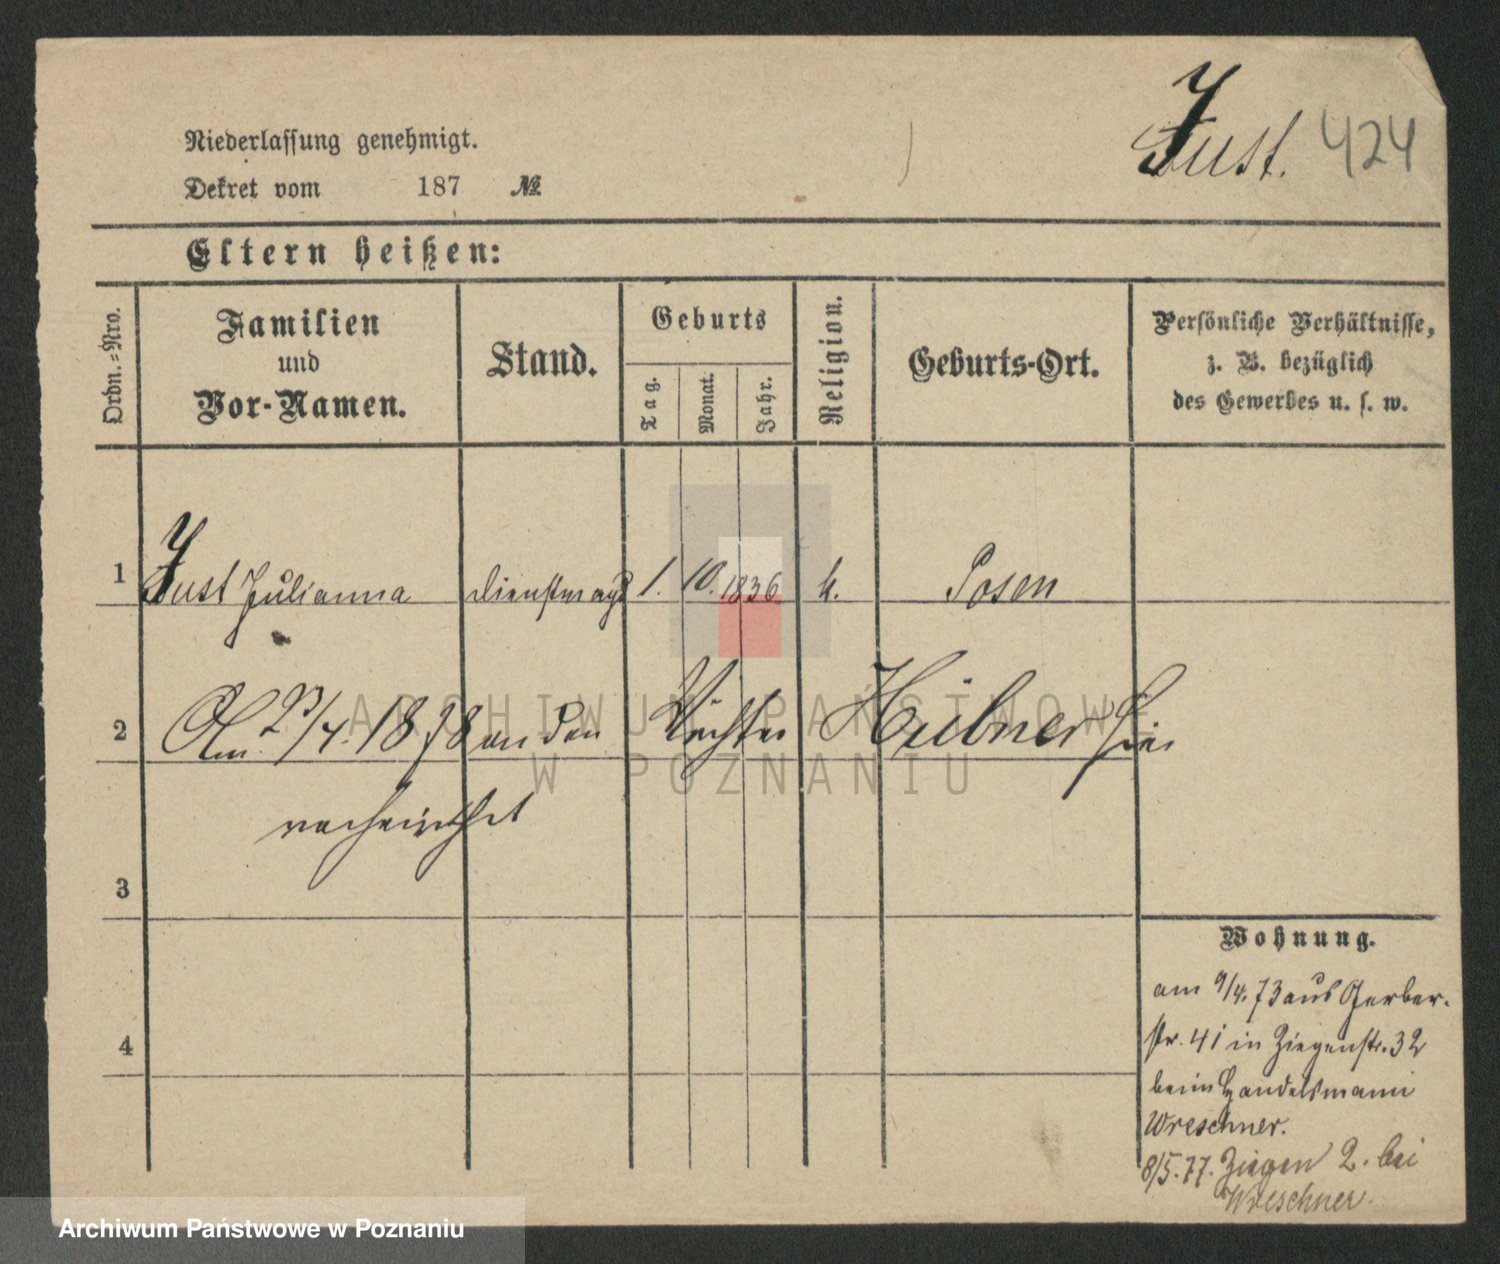 Just. 424
Niederlassung genehmigt.
Dekret vom 187 №
Eltern heißen:
Ordn.=Nro.
Familien
und
Vor-Namen.
Stand.
Geburts
Tag.
Monat.
Jahr.
Religion.
Geburts-Ort.
Persönliche Verhältnisse,
z. B. bezüglich
des Gewerbes u. s. w.
1 Just Julianna Dienstmagd 1. 10. 1836 k. Posen
2 Am 23/4. 1878 an den Wächter Hübner hier
verheirathet
3
4
Wohnung.
am 9/4. 73 aus Gerber-
str. 41 in Ziegenstr. 32
beim Handelsmann
Wreschner.
8/5. 77. Ziegen 2. bei
Wreschner.
ARCHIWUM PAŃSTWOWE
W POZNANIU
Archiwum Państwowe w Poznaniu